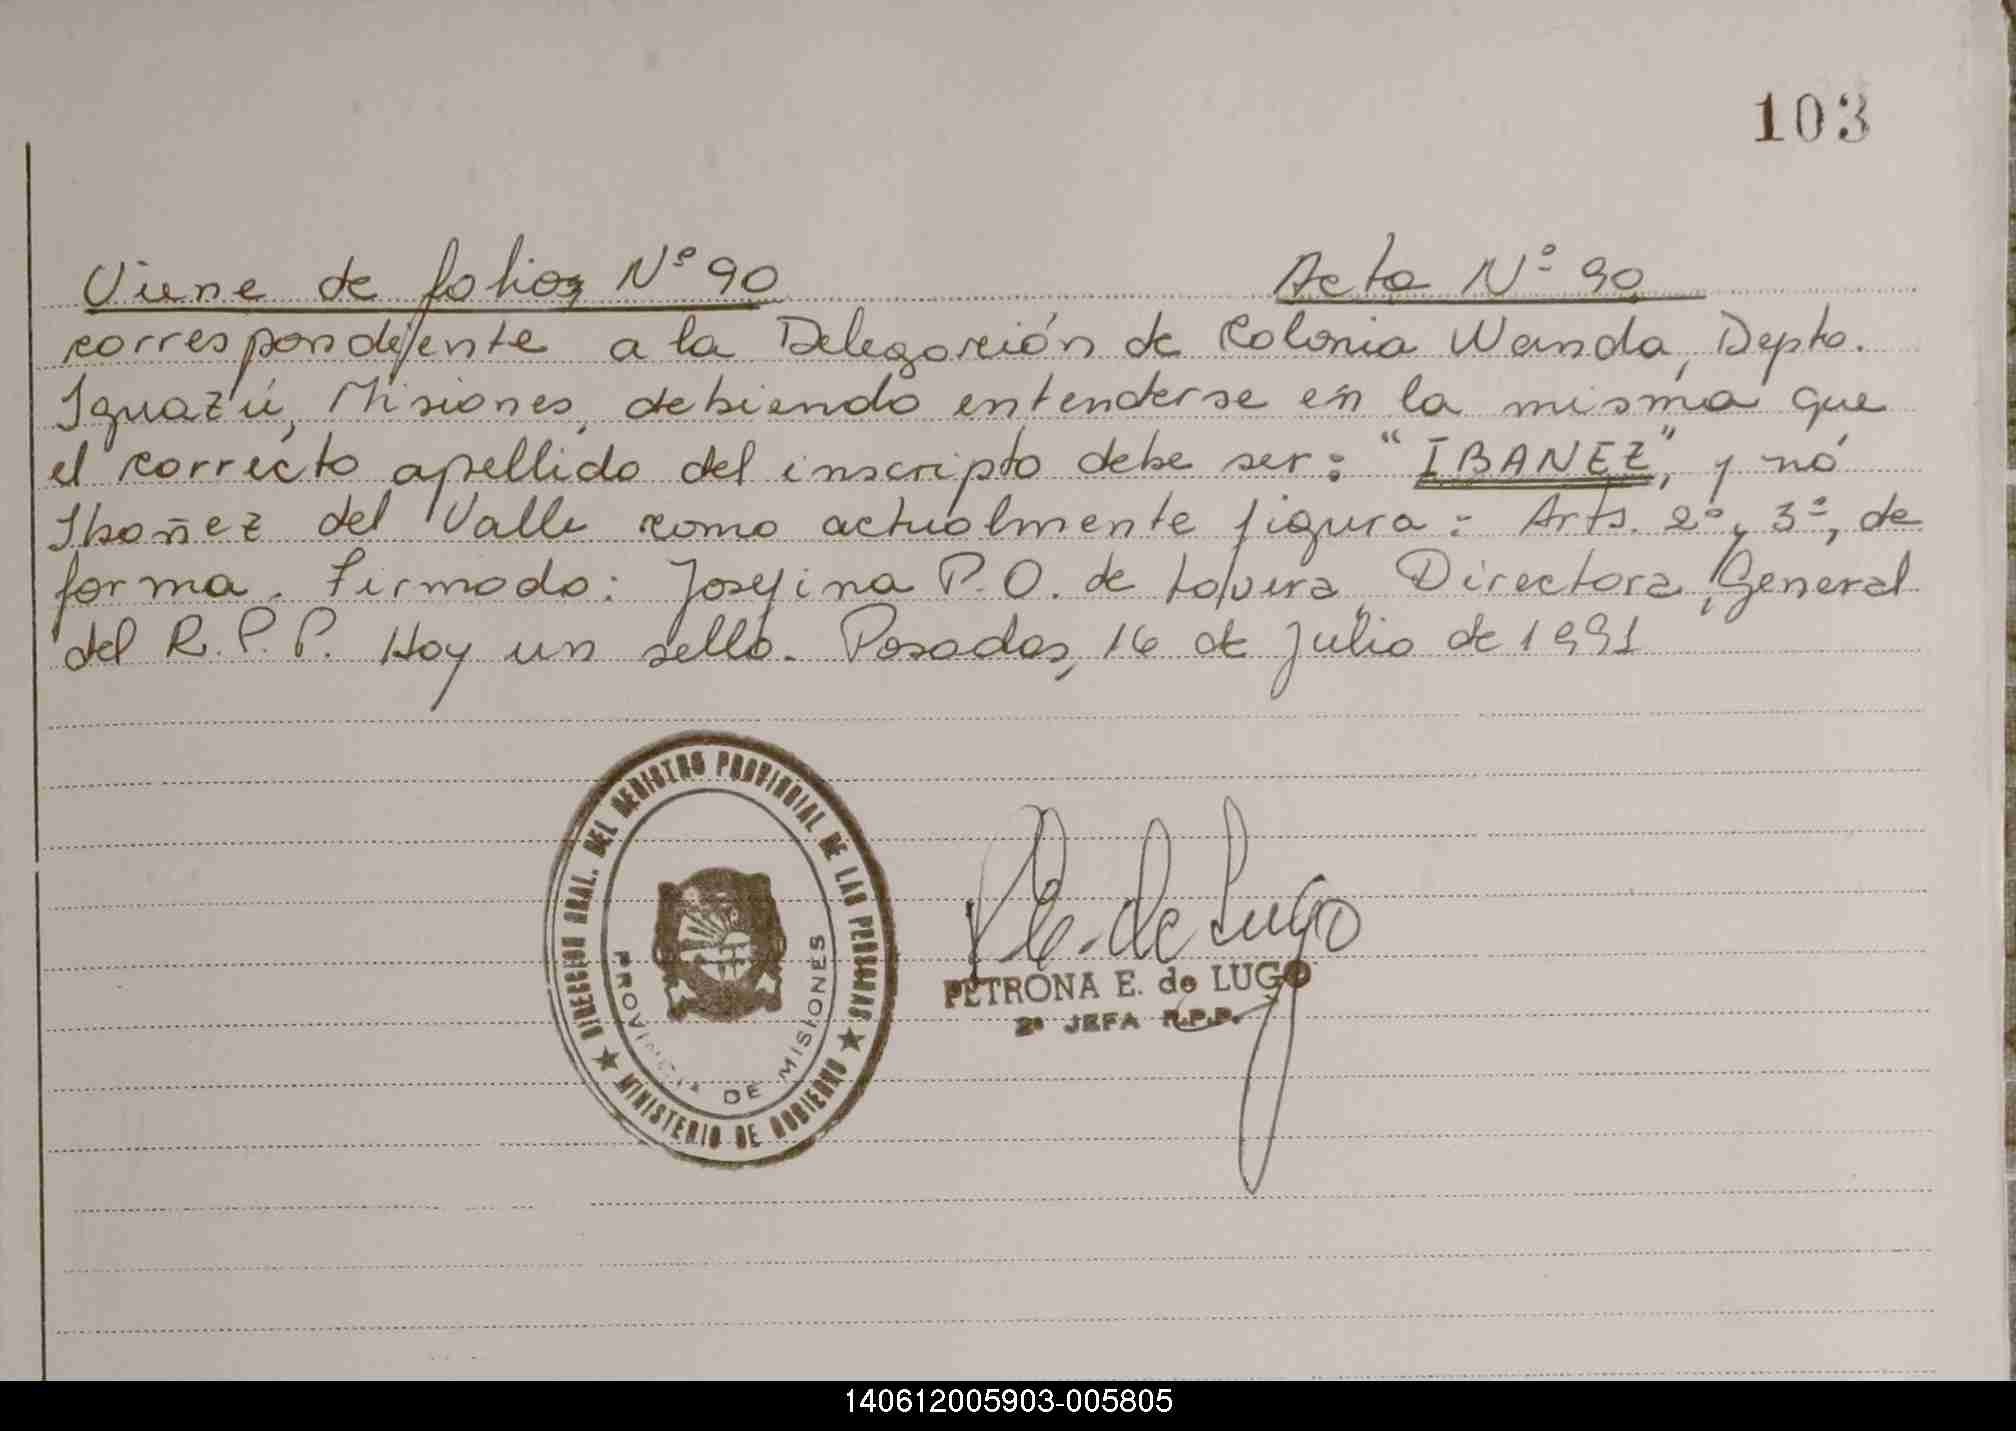 103
Viene de folios Nº 90
Acta Nº 90
correspondiente a la Delegación de Colonia Wanda, Depto.
Iguazú, Misiones, debiendo entenderse en la misma que
el correcto apellido del inscripto debe ser: "IBANEZ", y nó
Ibañez del Valle como actualmente figura: Arts. 2º, 3º, de
forma. Firmado: Josefina P.O. de Lovera, Directora, General
del R.P.P. Hay un sello. Posadas, 16 de Julio de 1991
DIRECCION GRAL. DEL REGISTRO PROVINCIAL DE LAS PERSONAS
PROVINCIA DE MISIONES
★ MINISTERIO DE GOBIERNO ★
de Lugo
PETRONA E. de LUGO
2ª JEFA R.P.P.
140612005903-005805